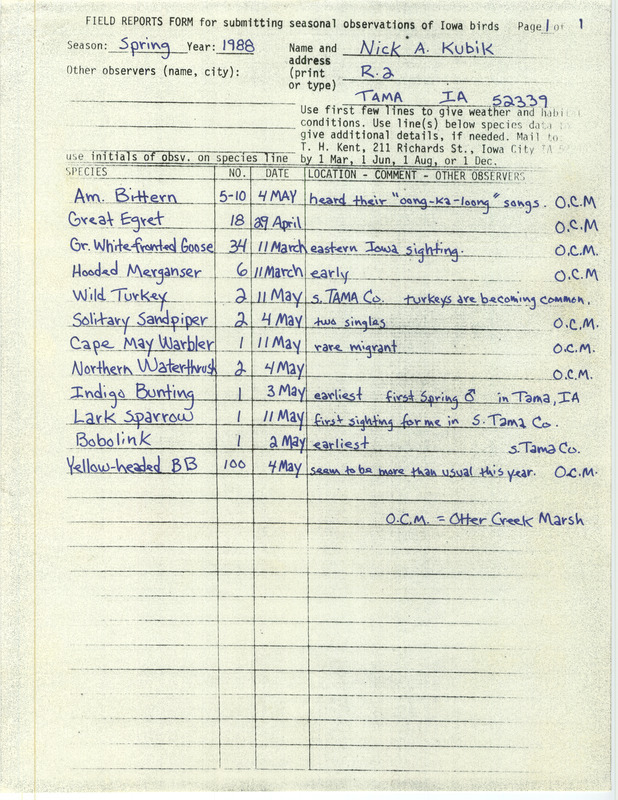 FIELD REPORTS FORM for submitting seasonal observations of Iowa birds Page 1 of 1
Season: Spring Year: 1988 Name and Nick A. Kubik
address
Other observers (name, city): (print R.2
or type)
TAMA IA 52339
Use first few lines to give weather and habitat
conditions. Use line(s) below species data to
give additional details, if needed. Mail to:
T. H. Kent, 211 Richards St., Iowa City IA
use initials of obsv. on species line by 1 Mar, 1 Jun, 1 Aug, or 1 Dec.
SPECIES NO. DATE LOCATION - COMMENT - OTHER OBSERVERS
Am. Bittern 5-10 4 MAY heard their "oong-ka-loong" songs. O.C.M
Great Egret 18 29 April O.C.M
Gr. White-fronted Goose 34 11 March eastern Iowa sighting. O.C.M.
Hooded Merganser 6 11 March early O.C.M
Wild Turkey 2 11 May S. TAMA Co. turkeys are becoming common.
Solitary Sandpiper 2 4 May two singles O.C.M.
Cape May Warbler 1 11 May rare migrant O.C.M.
Northern Waterthrush 2 4 May O.C.M.
Indigo Bunting 1 3 May earliest first Spring ♂ in Tama, IA
Lark Sparrow 1 11 May first sighting for me in S. Tama Co.
Bobolink 1 2 May earliest S. Tama Co.
Yellow-headed BB 100 4 May seem to be more than usual this year. O.C.M.
O.C.M. = Otter Creek Marsh